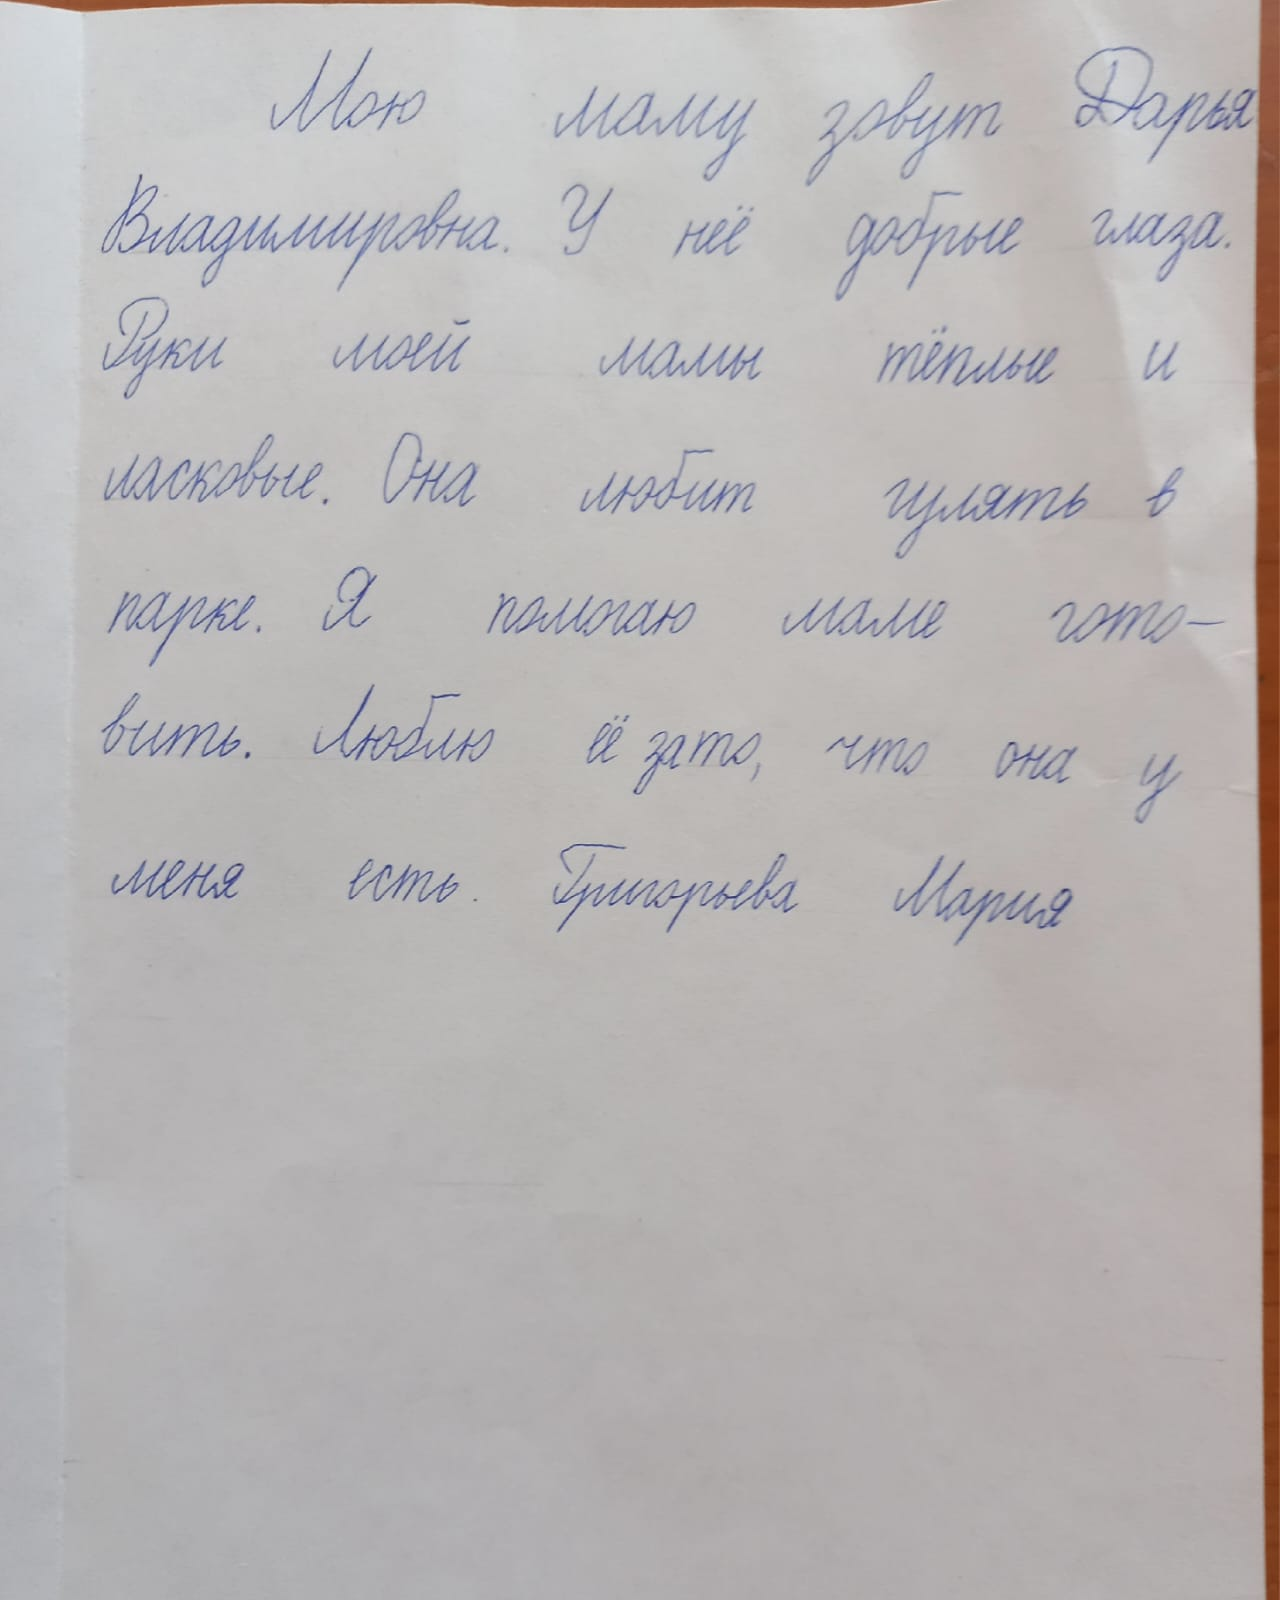 Мою маму зовут Дарья
Владимировна. У неё добрые глаза.
Руки моей мамы тёплые и
ласковые. Она любит гулять в
парке. Я помогаю маме гото-
вить. Люблю её зато, что она у
меня есть. Григорьева Мария